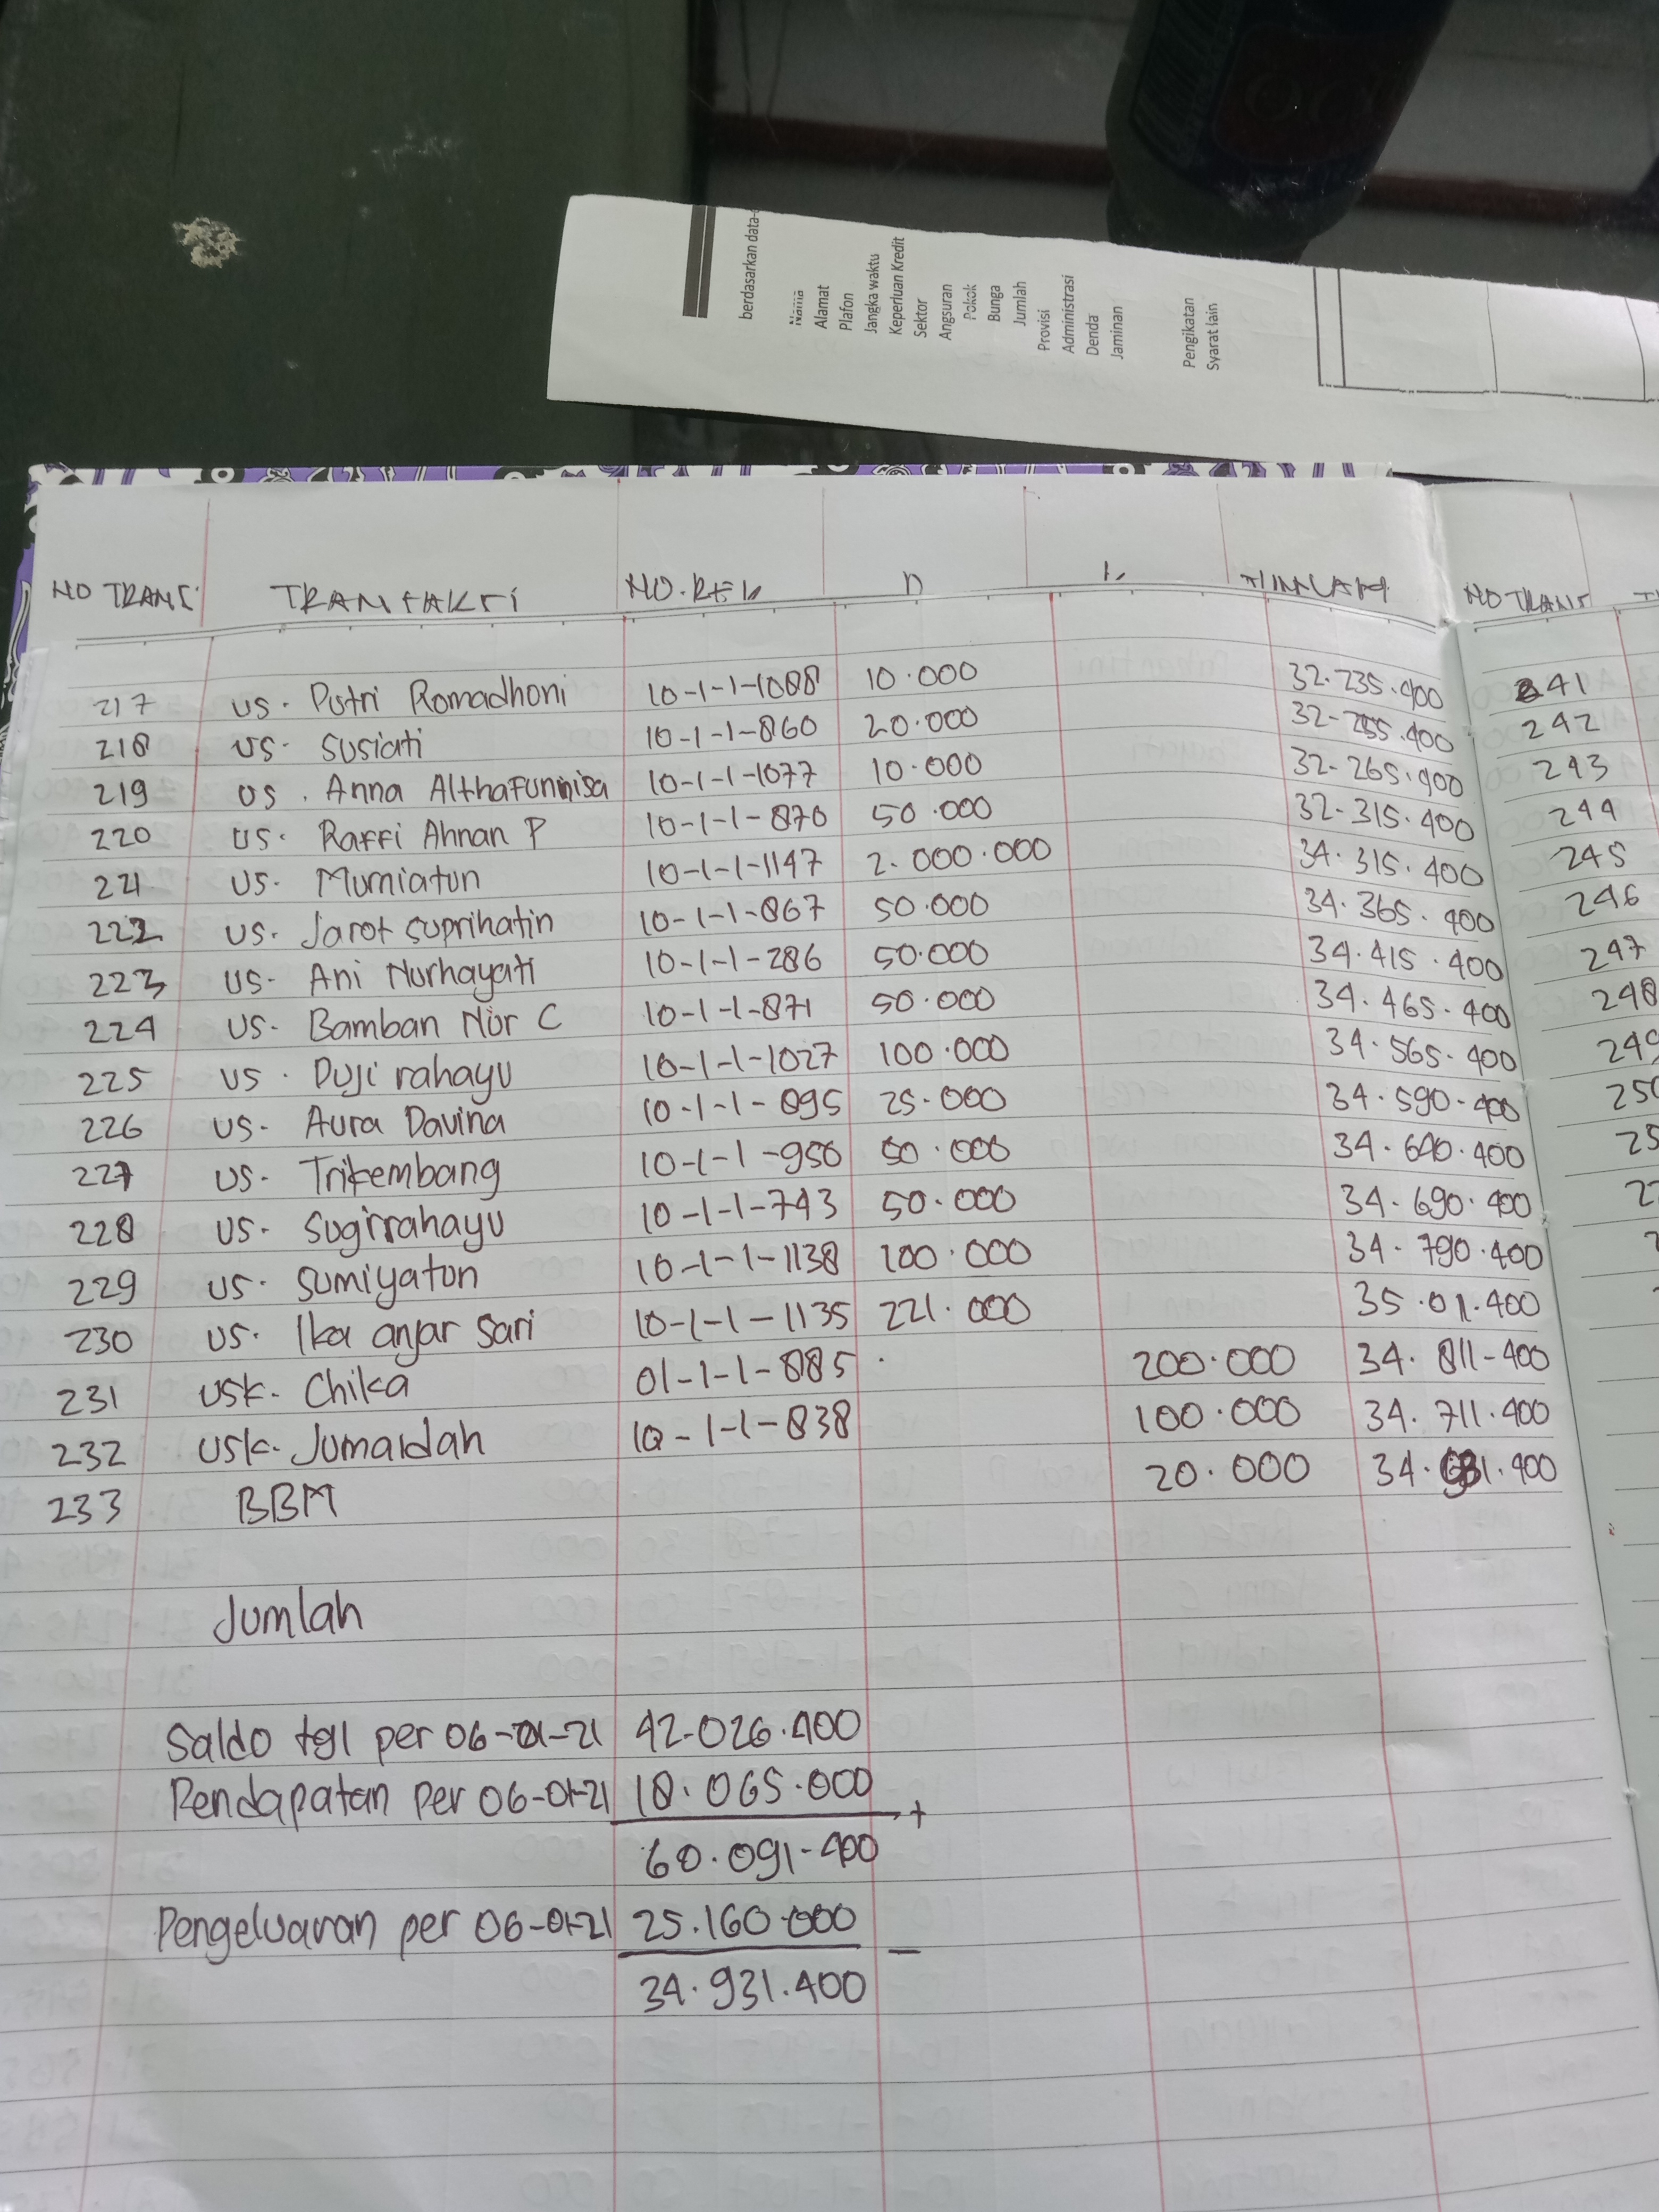 berdasarkan data-
Nama
Alamat
Plafon
Jangka waktu
Keperluan Kredit
Sektor
Angsuran
Pokok
Bunga
Jumlah
Provisi
Administrasi
Denda
Jaminan
Pengikatan
Syarat lain
NO TRANS TRANSAKSI NO.REK D K JUMLAH
217 US. Putri Romadhoni 10-1-1-1088 10.000 32.235.400
218 US. Susiati 10-1-1-860 20.000 32.255.400
219 US. Anna Althafunnisa 10-1-1-1077 10.000 32.265.400
220 US. Raffi Ahnan P 10-1-1-870 50.000 32.315.400
221 US. Murniatun 10-1-1-1147 2.000.000 34.315.400
222 US. Jarot suprihatin 10-1-1-867 50.000 34.365.400
223 US. Ani Nurhayati 10-1-1-286 50.000 34.415.400
224 US. Bamban Nur C 10-1-1-871 50.000 34.465.400
225 US. Puji rahayu 10-1-1-1027 100.000 34.565.400
226 US. Aura Davina 10-1-1-895 25.000 34.590.400
227 US. Trikembang 10-1-1-950 50.000 34.640.400
228 US. Sugirrahayu 10-1-1-743 50.000 34.690.400
229 US. Sumiyatun 10-1-1-1138 100.000 34.790.400
230 US. Ika anjar Sari 10-1-1-1135 221.000 35.011.400
231 USK. Chika 01-1-1-885 200.000 34.811.400
232 USK. Jumaidah 10-1-1-838 100.000 34.711.400
233 BBM 20.000 34.691.400
Jumlah
Saldo tgl per 06-01-21 42.026.400
Pendapatan per 06-01-21 18.065.000
+
60.091.400
Pengeluaran per 06-01-21 25.160.000
−
34.931.400
NO TRANS
241
242
243
244
245
246
247
248
249
250